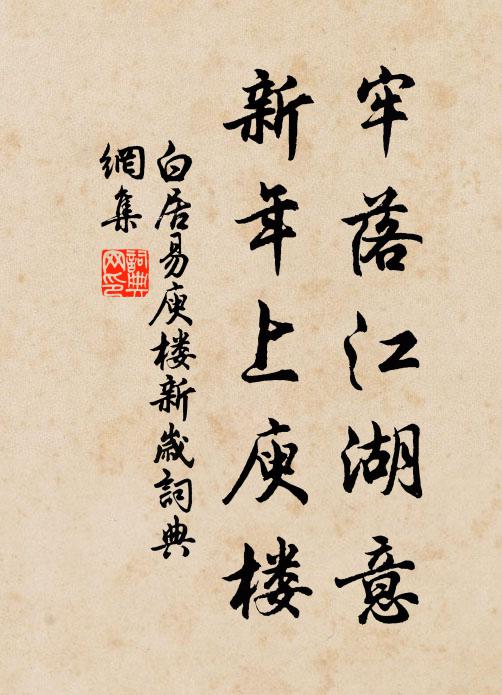 牢落江湖意
新年上庾楼
白居易庾楼新岁詞典
網集
詞典网印